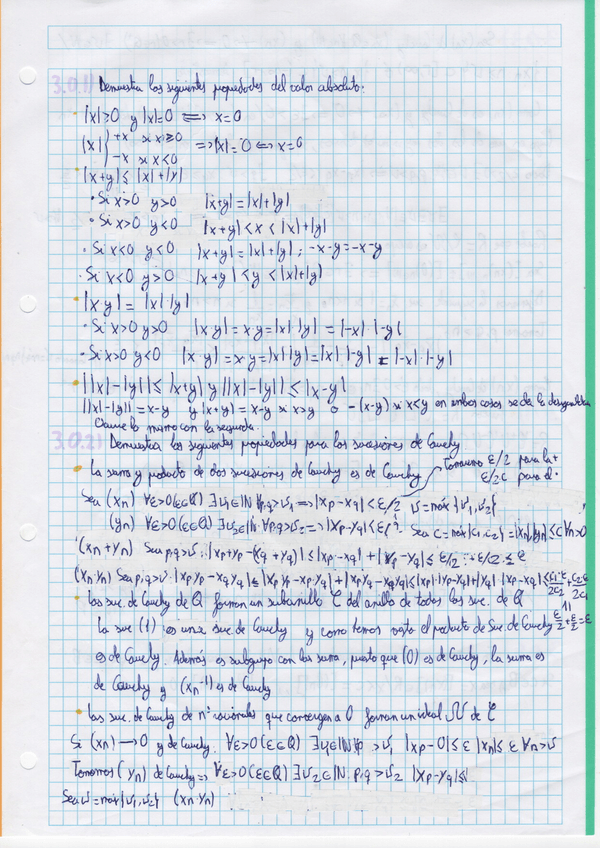 3.0.1) Demuestra las siguientes propiedades del valor absoluto:
• |x|≥0 y |x|=0 ⟺ x=0
|x| } +x si x≥0
-x si x<0 ⟹ |x|=0 ⟺ x=0
• |x+y| ≤ |x|+|y|
• Si x>0 y>0 |x+y|=|x|+|y|
• Si x>0 y<0 |x+y|<x<|x|+|y|
• Si x<0 y<0 |x+y|=|x|+|y|; -x-y=-x-y
• Si x<0 y>0 |x+y|<y<|x|+|y|
• |x·y| = |x|·|y|
• Si x>0 y>0 |x·y|=x·y=|x|·|y| = |-x|·|-y|
• Si x>0 y<0 |x·y|=x·y=|x|·|y|=|x|·|-y| = |-x|·|-y|
• ||x|-|y|| ≤ |x+y| y ||x|-|y|| ≤ |x-y|
||x|-|y|| = x-y y |x+y| = x-y si x>y o -(x-y) si x<y en ambos casos se da la desigualdad
Ocurre lo mismo con la segunda.
3.0.2) Demuestra las siguientes propiedades para las sucesiones de Cauchy
• La suma y producto de dos sucesiones de Cauchy es de Cauchy
Tomamos ε/2 para la +
ε/2c para el ·
Sea (xn) ∀ε>0(ε∈Q) ∃υ1∈ℕ ∀p,q>υ1 ⟹ |xp-xq|<ε/2 υ=máx{υ1,υ2}
(yn) ∀ε>0(ε∈Q) ∃υ2∈ℕ ∀p,q>υ2 ⟹ |yp-yq|<ε/2 Sea c=máx{c1,c2}
(xn+yn) Sean p,q>υ |xp+yp-(xq+yq)| ≤ |xp-xq| + |yp-yq| ≤ ε/2 + ε/2 ≤ ε
(xn·yn) Sea p,q>υ |xpyp-xqyq| ≤ |xpyp-xpyq|+|xpyq-xqyq| ≤ |xp|·|yp-yq|+|yq|·|xp-xq|
• Las suc. de Cauchy de Q forman un subanillo C del anillo de todas las suc. de Q
La suc (1) es una suc. de Cauchy y como hemos visto el producto de Suc de Cauchy ε/2+ε/2=ε
es de Cauchy. Además es subgrupo con la suma, puesto que (0) es de Cauchy, la suma es
de Cauchy y (xn⁻¹) es de Cauchy
• Las suc. de Cauchy de nº racionales que convergen a 0 forman un ideal N de C
Si (xn)→0 y de Cauchy. ∀ε>0(ε∈Q) ∃υ1∈ℕ ∀p>υ1 |xp-0|≤ε |xn|≤ε ∀n>υ
Tomamos (yn) de Cauchy ⟹ ∀ε>0(ε∈Q) ∃υ2∈ℕ p,q>υ2 |yp-yq|≤
Sea υ=máx{υ1,υ2} (xn·yn)